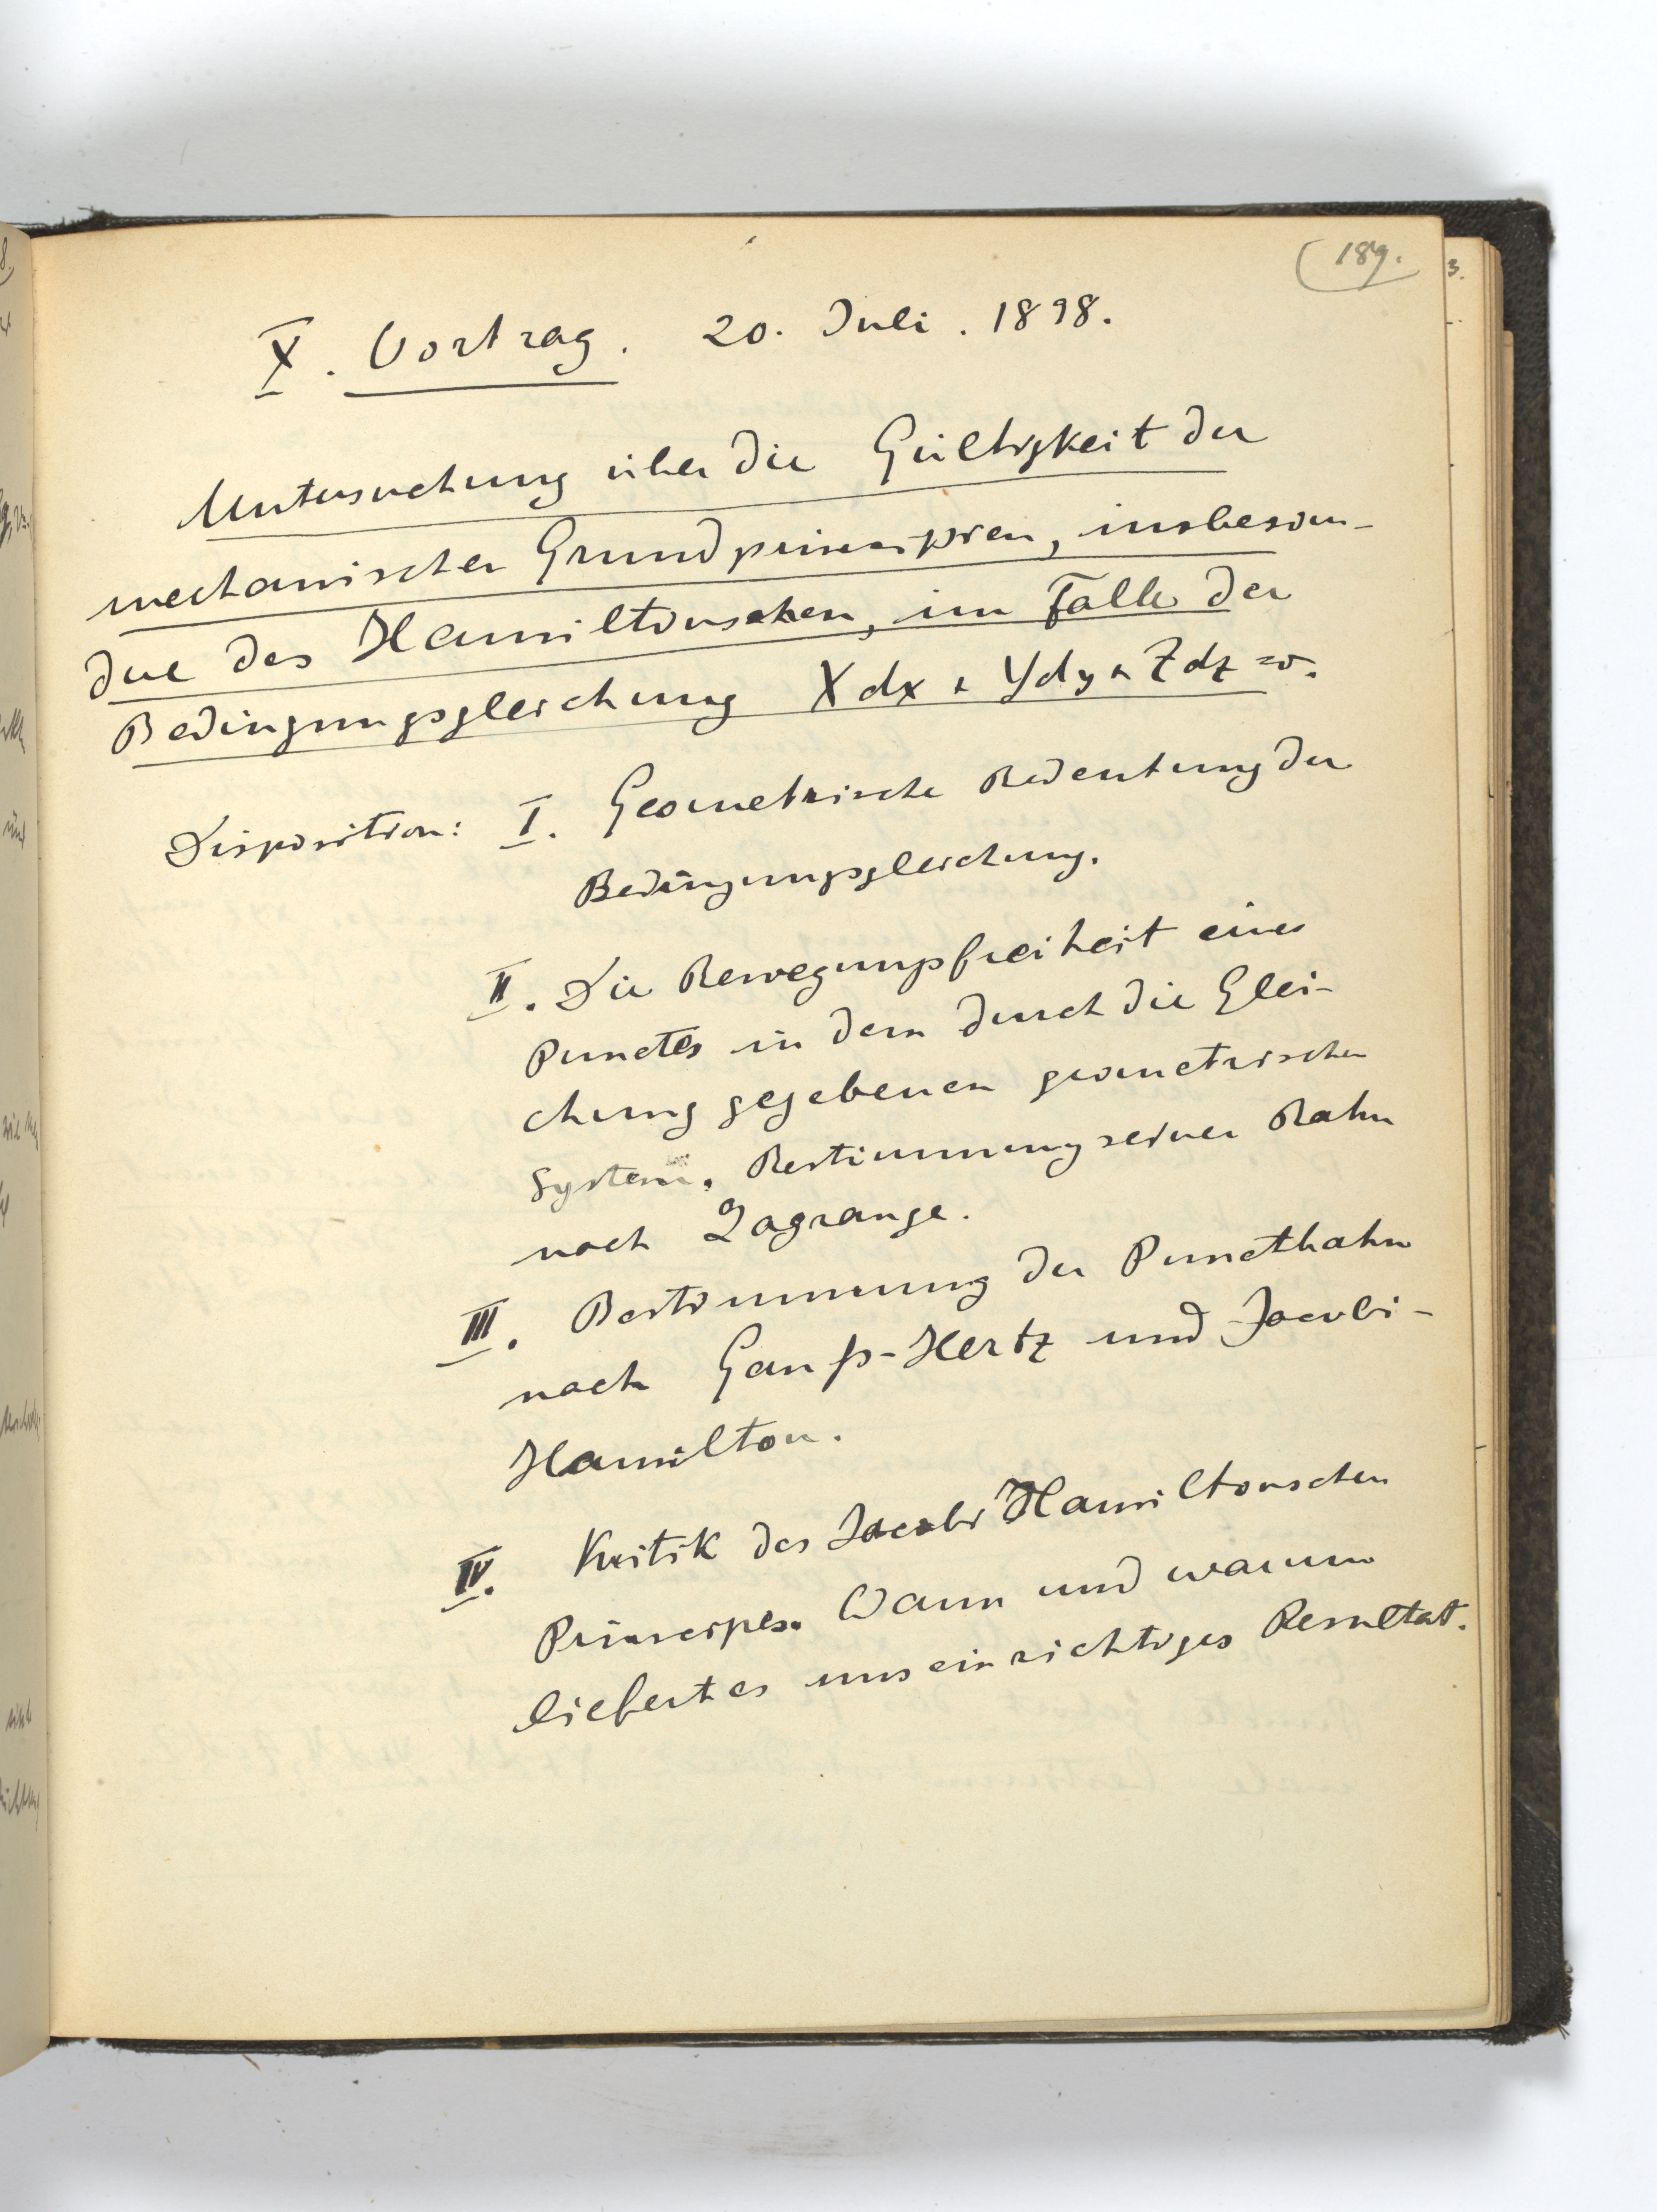 189.
X. Vortrag. 20. Juli. 1898.
Untersuchung über die Gültigkeit der
mechanischen Grundprincipien, insbeson-
dre des Hamiltonschen, im Falle der
Bedingungsgleichung Xdx + Ydy + Zdz = 0.
Disposition: I. Geometrische Bedeutung der
Bedingungsgleichung.
II. Die Bewegungsfreiheit eines
Punctes in dem durch die Glei-
chung gegebenen geometrischen
System. Bestimmung seiner Bahn
nach Lagrange.
III. Bestimmung der Punctbahn
nach Gauß-Hertz und Jacobi-
Hamilton.
IV. Kritik des Jacobi Hamiltonschen
Principes. Wann und warum
liefert es uns ein richtiges Resultat.
3.